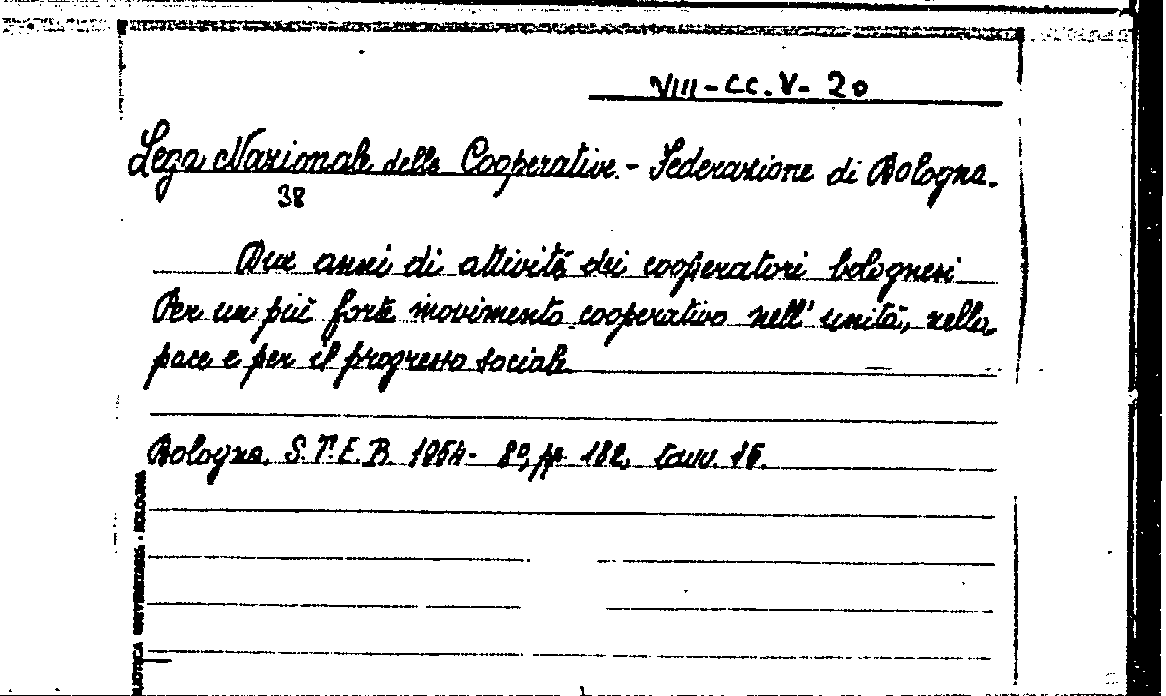 VIII-CC.V-20
Lega Nazionale delle Cooperative.- Federazione di Bologna.
38
Due anni di attività dei cooperatori bolognesi
Per un più forte movimento cooperativo nell'unità, nella
pace e per il progresso sociale
Bologna, S.T.E.B. 1954- 8º, pp. 182, tavv. 16.
BIBLIOTECA UNIVERSITARIA - BOLOGNA